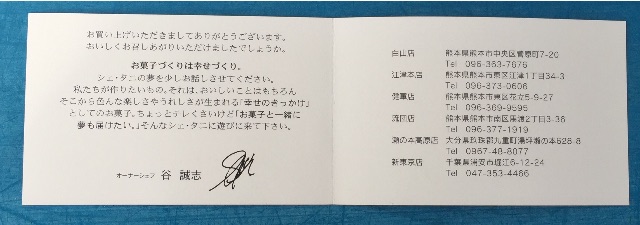 お買い上げいただきましてありがとうございます。
おいしくお召しあがりいただけましたでしょうか。
お菓子づくりは幸せづくり。
シェ・タニの夢を少しお話しさせてください。
私たちが作りたいもの。それは、おいしいことはもちろん
そこから色んな楽しさやうれしさが生まれる「幸せのきっかけ」
としてのお菓子。ちょっとテレくさいけど「お菓子と一緒に
夢も届けたい。」そんなシェ・タニに遊びに来て下さい。
オーナーシェフ 谷 誠志
白山店 熊本県熊本市中央区菅原町7-20
Tel 096-363-7676
江津本店 熊本県熊本市東区江津1丁目34-3
Tel 096-373-0606
健軍店 熊本県熊本市東区花立5-9-27
Tel 096-369-9595
流団店 熊本県熊本市南区馬渡2丁目3-36
Tel 096-377-1919
瀬の本高原店 大分県玖珠郡九重町湯坪瀬の本628-8
Tel 0967-48-8077
新東京店 千葉県浦安市堀江6-12-24
Tel 047-353-4466